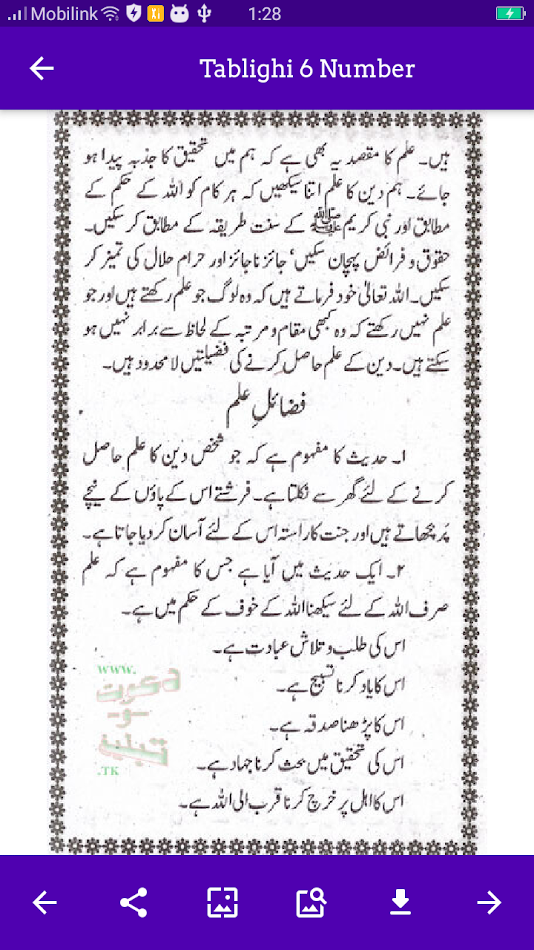 Mobilink 1:28
Tablighi 6 Number
ہیں۔ علم کا مقصد یہ بھی ہے کہ ہم میں تحقیق کا جذبہ پیدا ہو
جائے۔ ہم دین کا علم اتنا سیکھیں کہ ہر کام کو اللہ کے حکم کے
مطابق اور نبی کریم ﷺ کے سنت طریقہ کے مطابق کر سکیں۔
حقوق و فرائض پہچان سکیں‘ جائز ناجائز اور حرام حلال کی تمیز کر
سکیں۔ اللہ تعالیٰ خود فرماتے ہیں کہ وہ لوگ جو علم رکھتے ہیں اور جو
علم نہیں رکھتے کہ وہ کبھی مقام و مرتبہ کے لحاظ سے برابر نہیں ہو
سکتے ہیں۔ دین کے علم حاصل کرنے کی فضیلتیں لامحدود ہیں۔
فضائلِ علم
۱۔ حدیث کا مفہوم ہے کہ جو شخص دین کا علم حاصل
کرنے کے لئے گھر سے نکلتا ہے۔ فرشتے اس کے پاؤں کے نیچے
پَر بچھاتے ہیں اور جنت کا راستہ اس کے لئے آسان کر دیا جاتا ہے۔
۲۔ ایک حدیث میں آیا ہے جس کا مفہوم ہے کہ علم
صرف اللہ کے لئے سیکھنا اللہ کے خوف کے حکم میں ہے۔
اس کی طلب و تلاش عبادت ہے۔
اس کا یاد کرنا تسبیح ہے۔
اس کا پڑھنا صدقہ ہے۔
اس کی تحقیق میں بحث کرنا جہاد ہے۔
اس کا اہل پر خرچ کرنا قرب الی اللہ ہے۔
www.
دعوت
-و-
تبلیغ
.TK